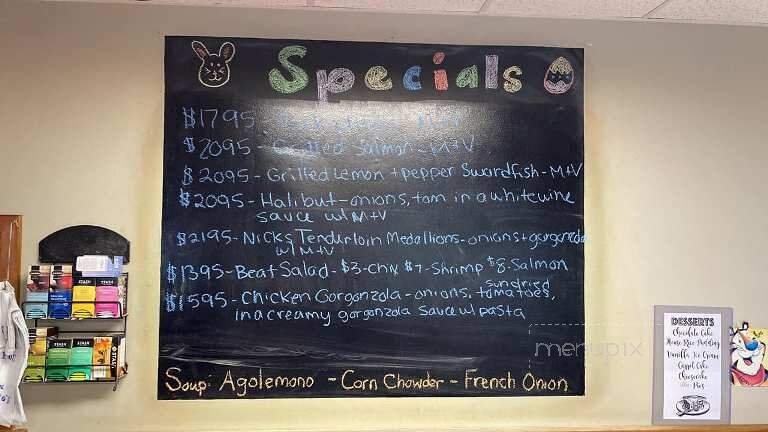 Specials
$1795 -
$2095 - Grilled Salmon - M+V
$2095 - Grilled Lemon + pepper Swordfish - M+V
$2095 - Halibut - onions, tom in a white wine
sauce w/ M+V
$2195 - Nicks Tenderloin Medallions - onions + gorgonzola
w/ M+V
$1395 - Beat Salad - $3-Chix $7-Shrimp $8-Salmon
$1595 - Chicken Gorgonzola - onions, sundried tomatoes,
in a creamy gorgonzola sauce w/ pasta
Soup: Agolemono - Corn Chowder - French Onion
menupix
DESSERTS
Chocolate Cake
House Rice Pudding
Vanilla Ice Cream
Carrot Cake
Cheesecake
Pies
STASH
STASH
STASH